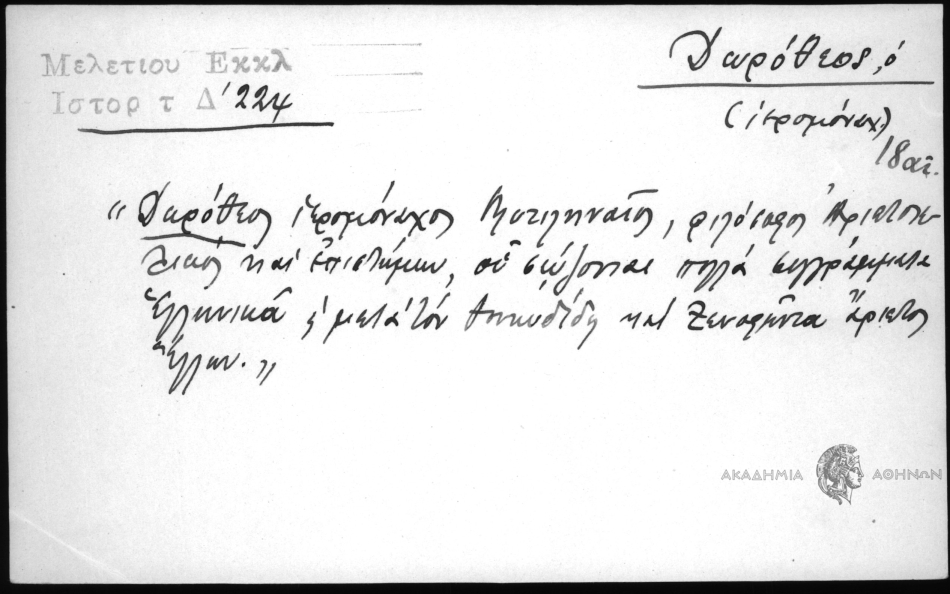 Μελετιου Εκκλ
Ιστορ τ Δ' 224
Δωρόθεος, ὁ
(ἱερομόναχ.)
18 αἰ.
"Δωρόθεος ἱερομόναχος Μυτιληναῖος, φιλόσοφος Ἀριστοτε-
λικὸς καὶ ἐπιστήμων, οὗ σώζονται πολλὰ συγγράμματα
Ἑλληνικὰ ὁ μετὰ τὸν Θουκυδίδη καὶ Ξενοφῶντα ἄριστος
Ἕλλην."
ΑΚΑΔΗΜΙΑ ΑΘΗΝΩΝ